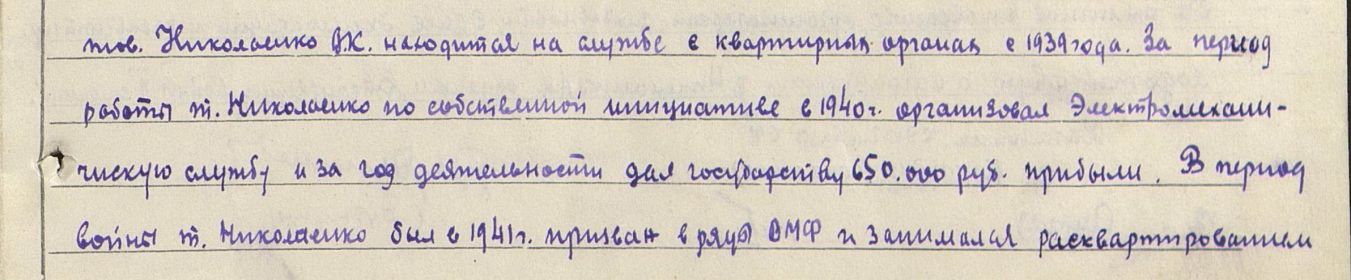 тов. Николаенко В.К. находится на службе в квартирных органах с 1939 года. За период
работы т. Николаенко по собственной инициативе в 1940 г. организовал Электромехани-
ческую службу и за год деятельности дал государству 650.000 руб. прибыли. В период
войны т. Николаенко был в 1941 г. призван в ряды ВМФ и занимался расквартированием